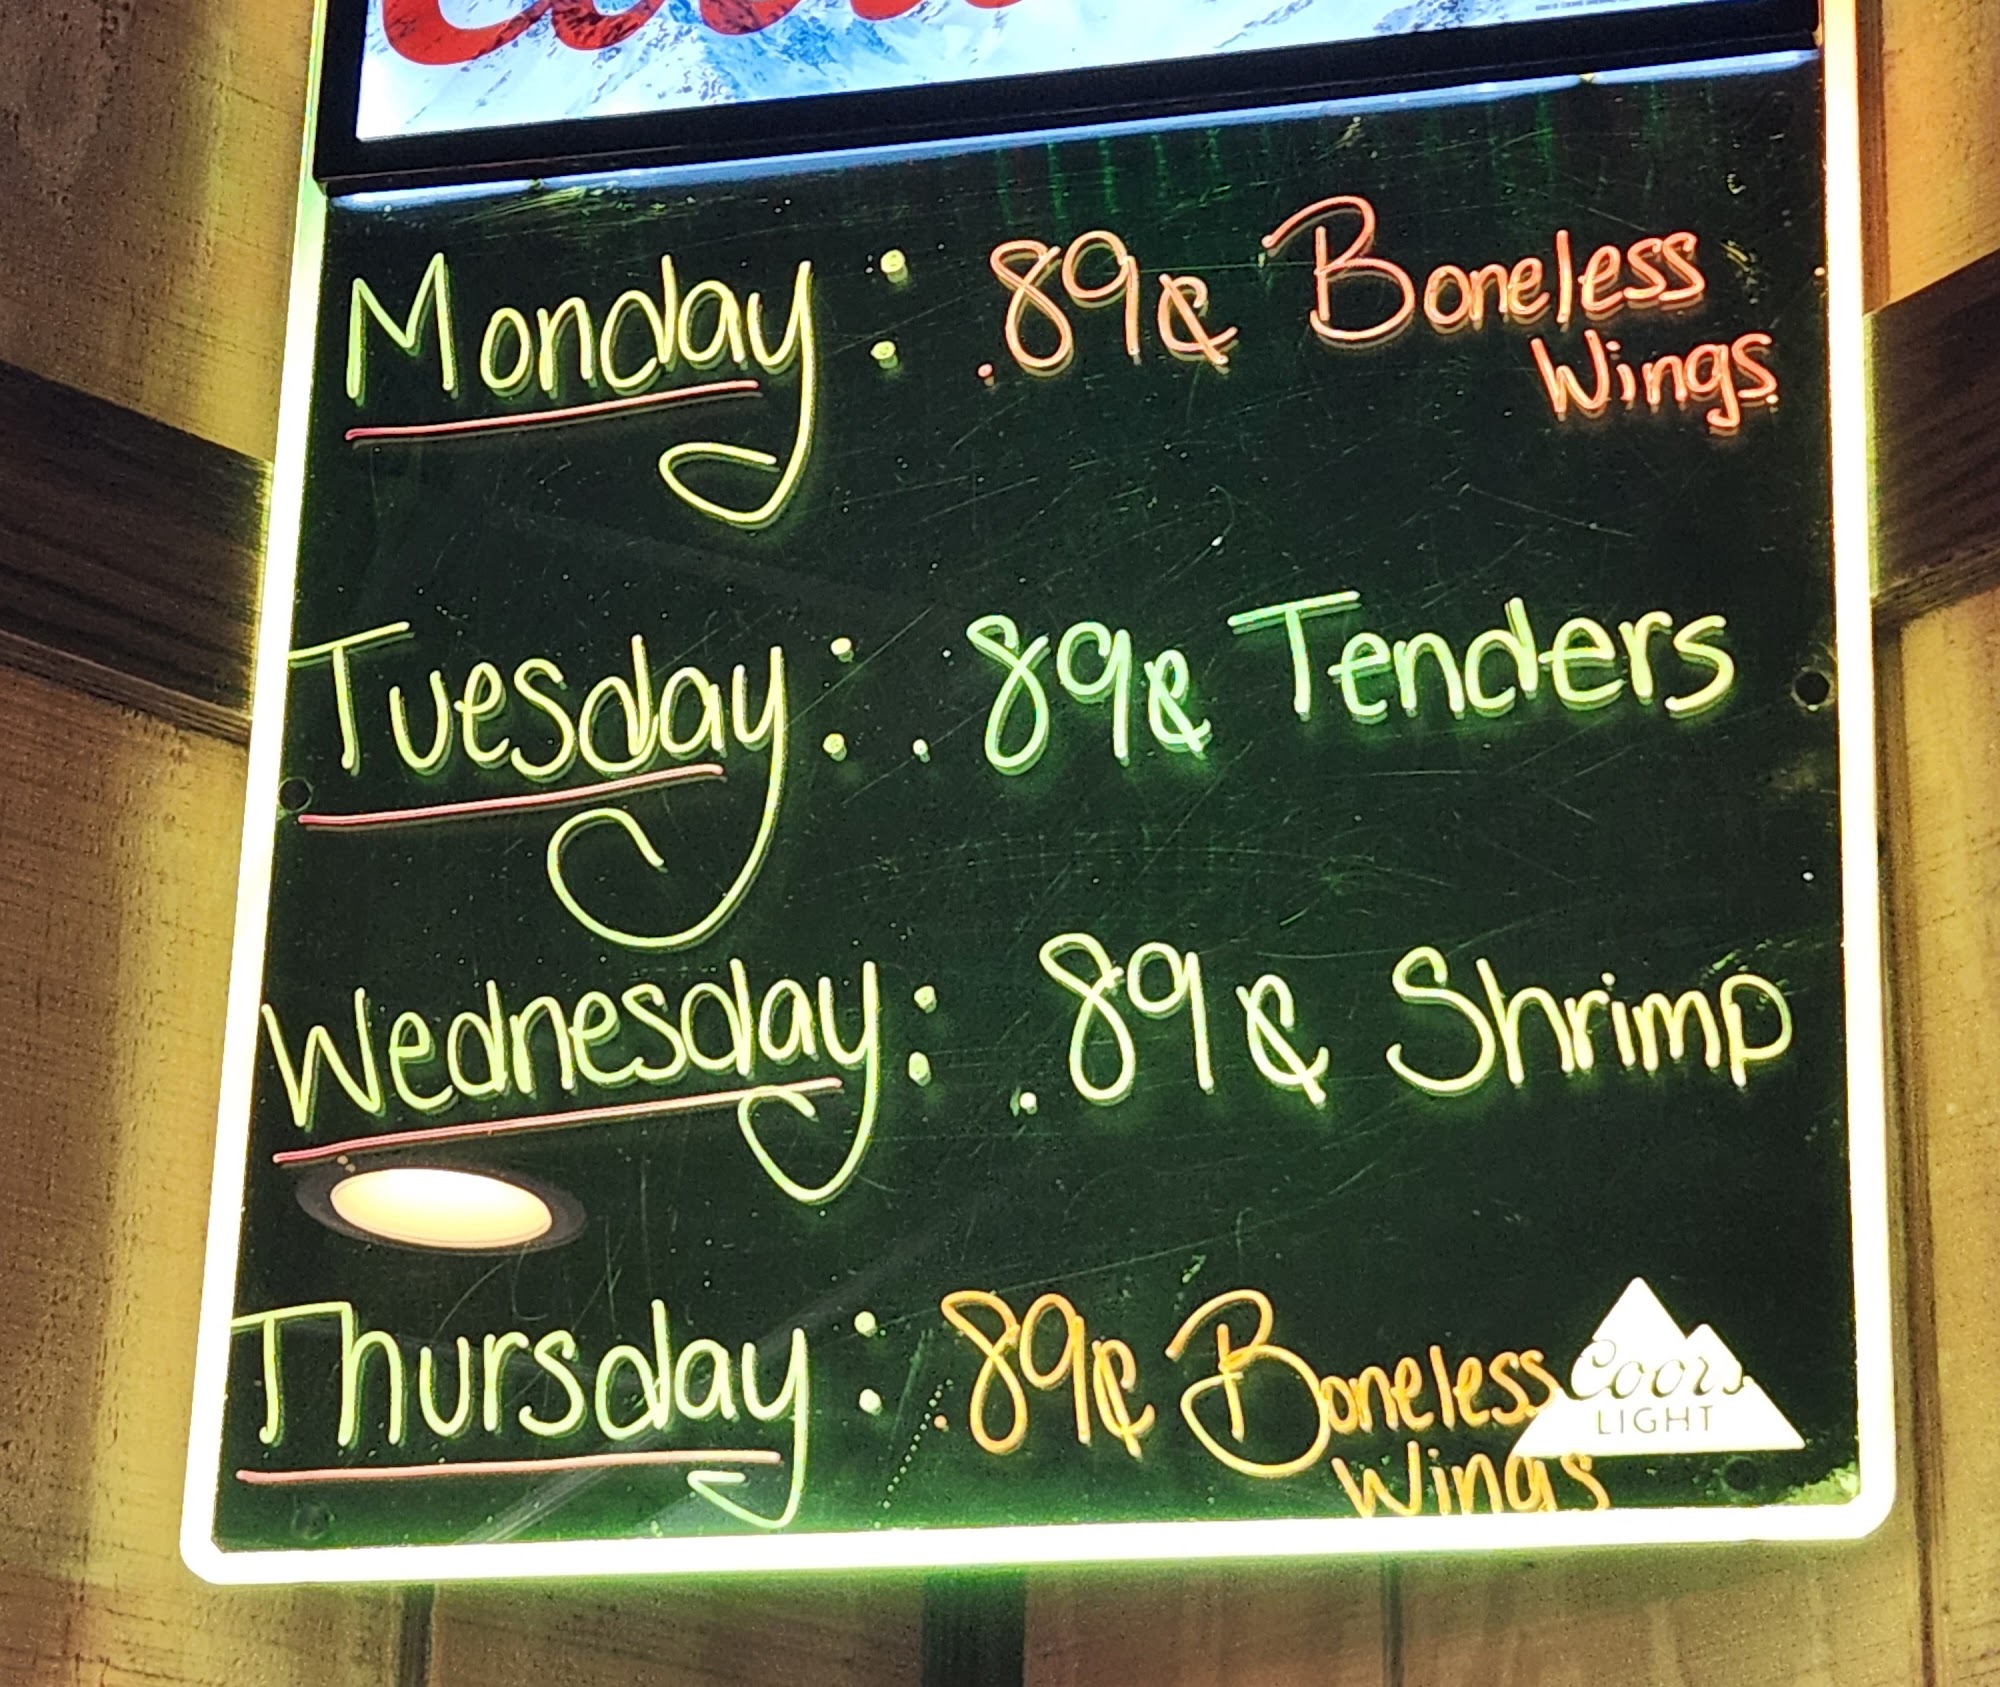 Monday: .89¢ Boneless
Wings.
Tuesday: .89¢ Tenders
Wednesday: .89¢ Shrimp
Thursday: .89¢ Boneless
Wings
Coors
LIGHT